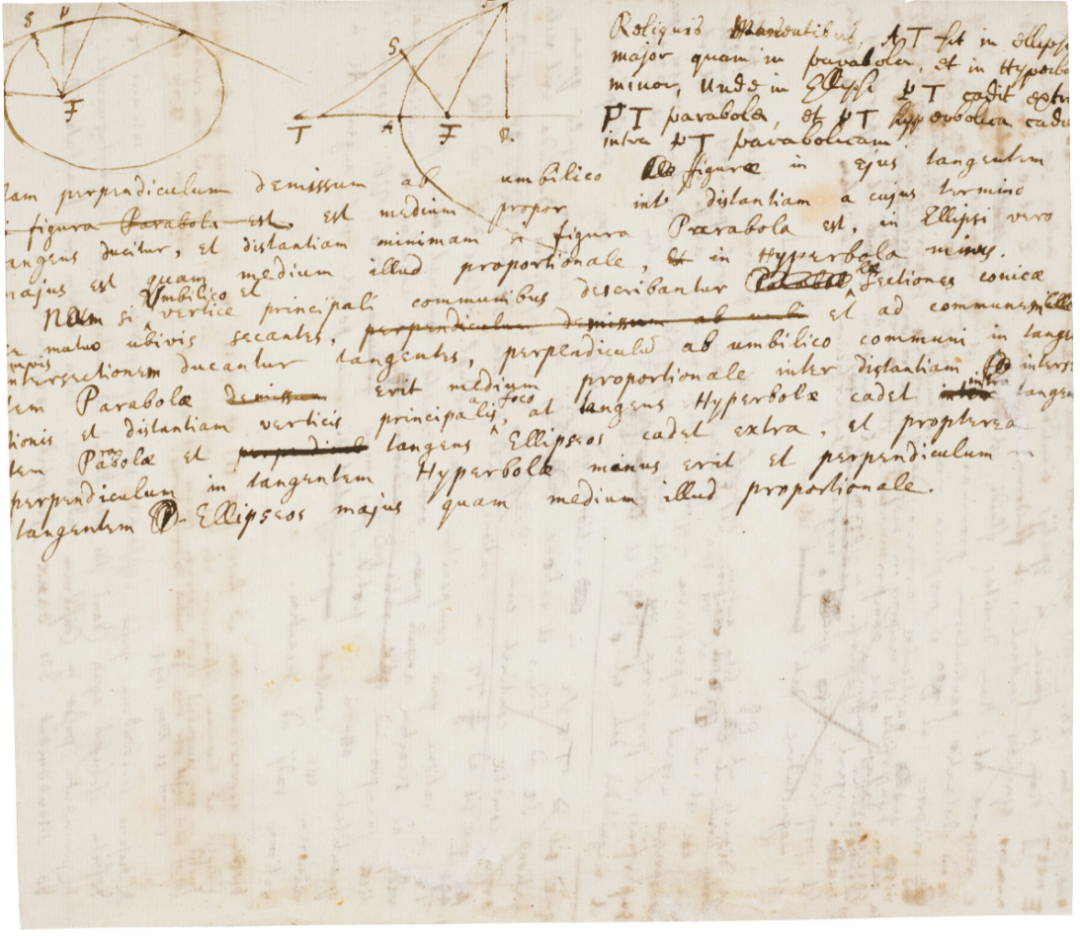 S P
F
S
T A F
Reliquis manentibus, AT fit in ellipsi
major quam in parabola, et in Hyperbo
minor, Unde in Ellipsi PT cadit extra
PT parabolæ, et PT hyperbolica cadit
intra PT parabolicam
perpendiculum demissum ab umbilico figuræ in ejus tangentem
figura Parabola est, est medium propor int distantiam a cujus termino
angens ducitur, et distantiam minimam si figura Parabola est, in Ellipsi vero
majus est quam medium illud proportionale, et in Hyperbola minus.
Umbilico et
Nam si vertice principali communibus describantur Sectiones conicæ
se mutuo ubivis secantes, perpendiculum demissum ab umbi et ad communem
ntersectionem ducantur tangentes, perpendiculū ab umbilico communi in tang
em Parabolæ demissum erit medium proportionale inter distantiam inters
a foco intra
tionis et distantiam verticis principalis, at tangens Hyperbolæ cadet tangen
tem Parabolæ et tangens Ellipseos cadet extra, et propterea
perpendiculum in tangentem Hyperbolæ minus erit et perpendiculum
tangentem Ellipseos majus quam medium illud proportionale.